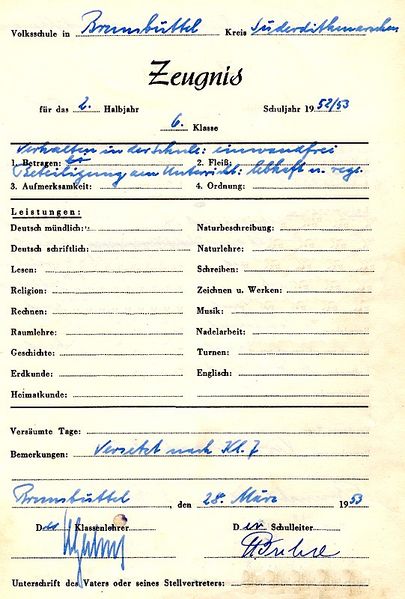 Volksschule in Brunsbüttel Kreis Süderdithmarschen
Zeugnis
für das 2. Halbjahr Schuljahr 1952/53
6. Klasse
Verhalten in der Schule: einwandfrei
1. Betragen: 2. Fleiß:
Beteiligung am Unterricht: lebhaft u. rege
3. Aufmerksamkeit: 4. Ordnung:
Leistungen:
Deutsch mündlich: Naturbeschreibung:
Deutsch schriftlich: Naturlehre:
Lesen: Schreiben:
Religion: Zeichnen u. Werken:
Rechnen: Musik:
Raumlehre: Nadelarbeit:
Geschichte: Turnen:
Erdkunde: Englisch:
Heimatkunde:
Versäumte Tage:
Bemerkungen: Versetzt nach Kl. 7
Brunsbüttel den 28. März 1953
Der Klassenlehrer Der Schulleiter
Unterschrift des Vaters oder seines Stellvertreters: